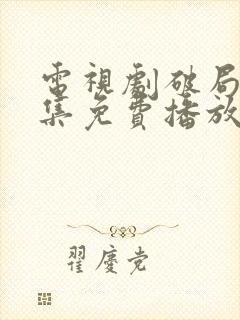 電視劇破局
集免費播放
翟慶党